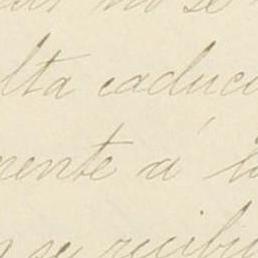 no se
lta caduc
mente á l
su recibi